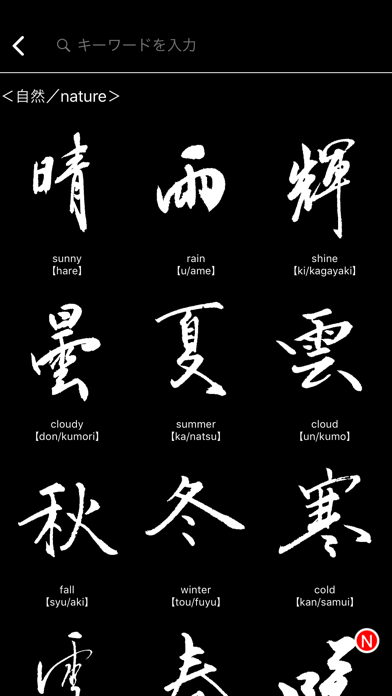 キーワードを入力
＜自然／nature＞
晴 雨 輝
sunny rain shine
【hare】 【u/ame】 【ki/kagayaki】
曇 夏 雲
cloudy summer cloud
【don/kumori】 【ka/natsu】 【un/kumo】
秋 冬 寒
fall winter cold
【syu/aki】 【tou/fuyu】 【kan/samui】
春
N